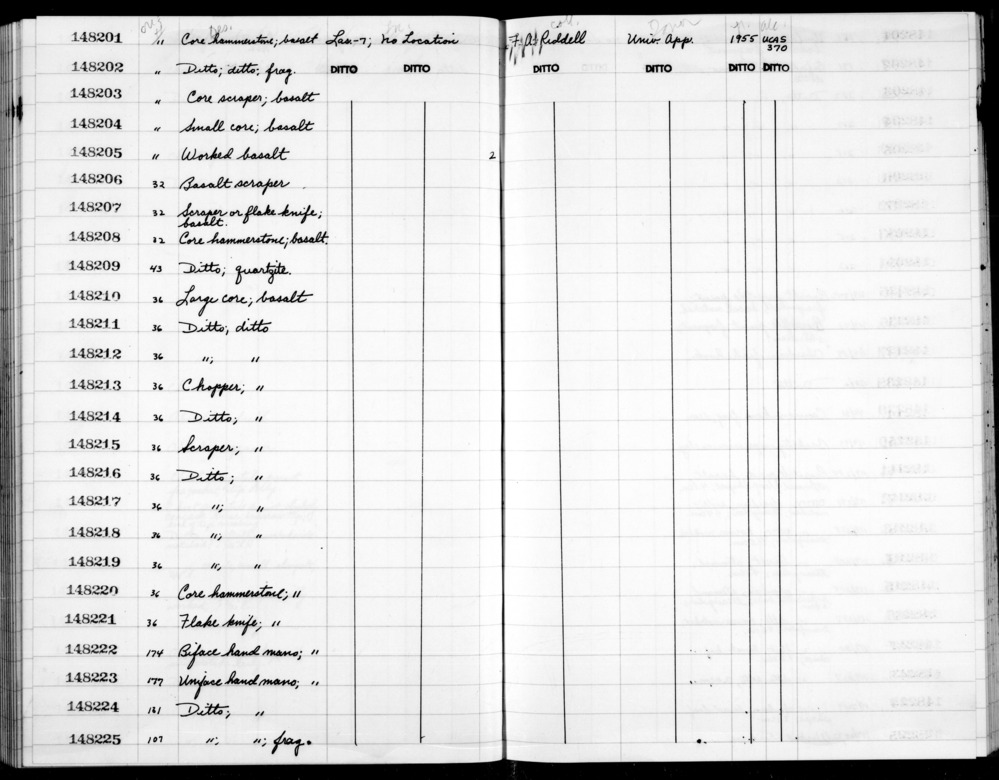 orig des. coll. Donor
148201 " Core hammerstone; basalt Las-7; No Location F. A. Riddell Univ. App. 1955 UCAS 370
148202 " Ditto; ditto; frag. DITTO DITTO DITTO DITTO DITTO DITTO
148203 " Core scraper; basalt
148204 " Small core; basalt
148205 " Worked basalt 2
148206 32 Basalt scraper
148207 32 Scraper or flake knife;
basalt.
148208 32 Core hammerstone; basalt.
148209 43 Ditto; quartzite.
148210 36 Large core; basalt
148211 36 Ditto; ditto
148212 36 "; "
148213 36 Chopper; "
148214 36 Ditto; "
148215 36 Scraper; "
148216 36 Ditto; "
148217 36 "; "
148218 36 "; "
148219 36 "; "
148220 36 Core hammerstone; "
148221 36 Flake knife; "
148222 174 Biface hand mano; "
148223 177 Uniface hand mano; "
148224 181 Ditto; "
148225 107 "; "; frag.